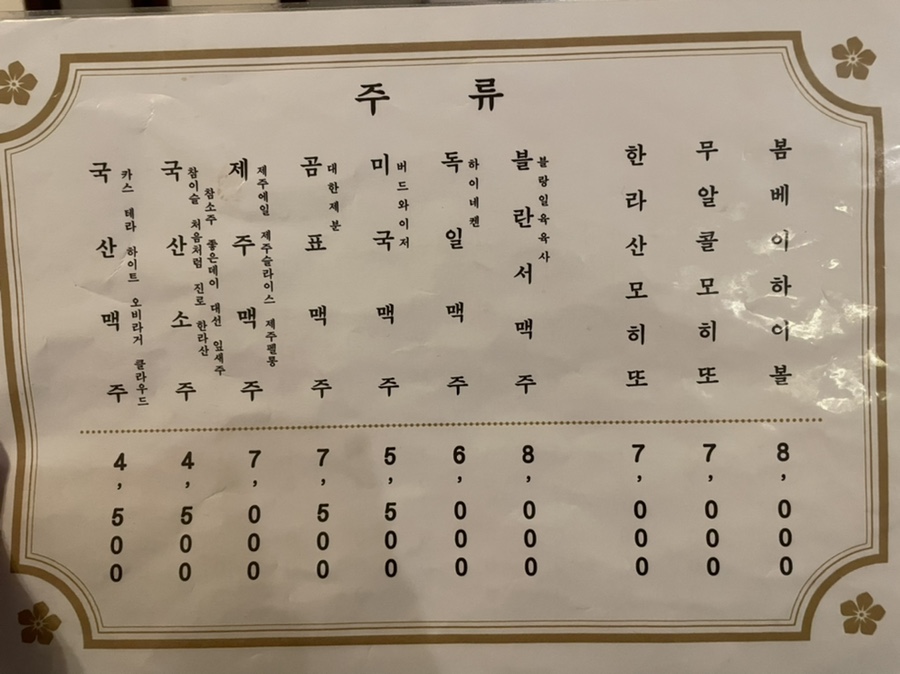 주 류
국산맥주
카스 테라 하이트 오비라거 클라우드
4,500
국산소주
참이슬 처음처럼 진로 한라산
참소주 좋은데이 대선 잎새주
4,500
제주맥주
제주에일 제주슬라이스 제주펠롱
7,000
곰표맥주
대한제분
7,500
미국맥주
버드와이저
5,500
독일맥주
하이네켄
6,000
블란서맥주
불랑일육육사
8,000
한라산모히또
7,000
무알콜모히또
7,000
봄베이하이볼
8,000